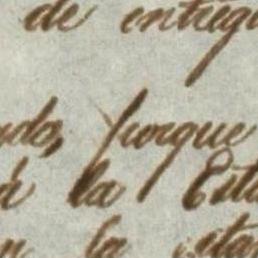 de entreg
ndo, porque
a la Esta
n la esta